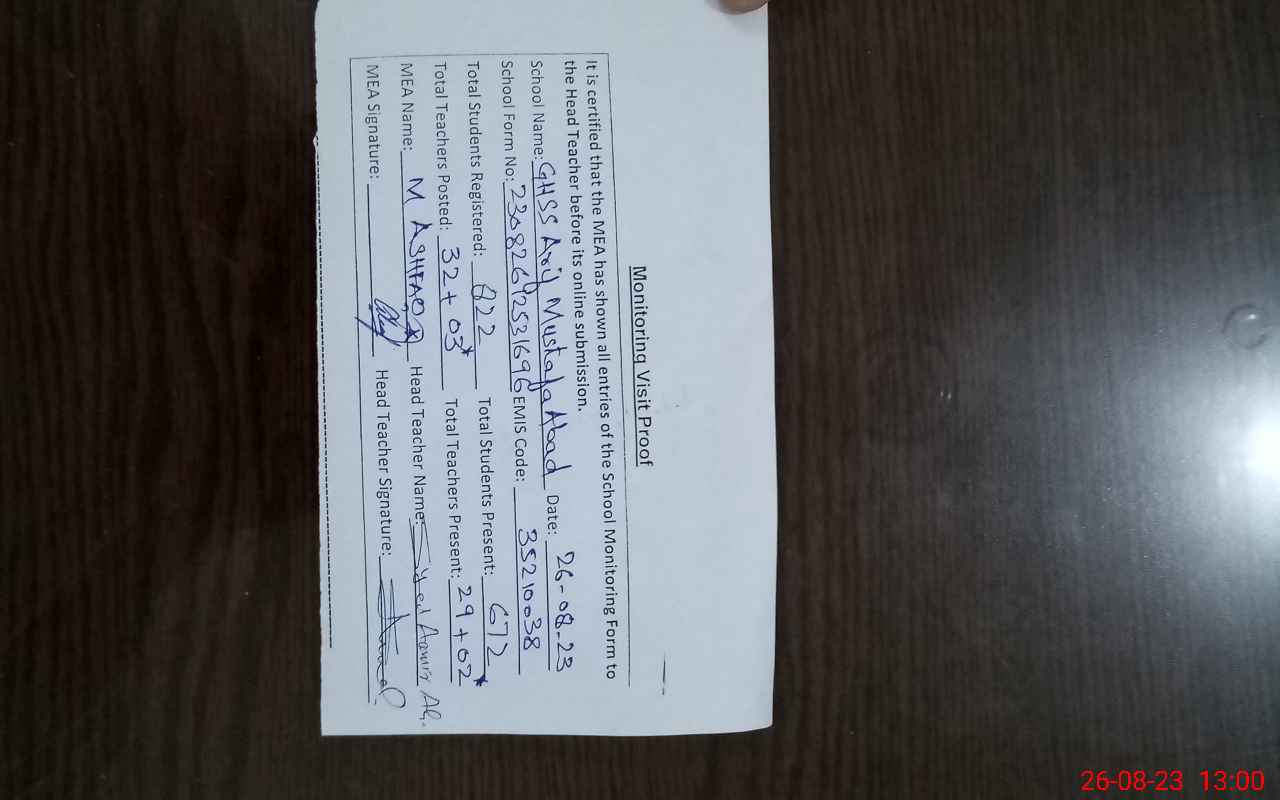 Monitoring Visit Proof
It is certified that the MEA has shown all entries of the School Monitoring Form to
the Head Teacher before its online submission.
School Name: GHSS Arif Mustafa Abad Date: 26-08-23
School Form No: EMIS Code: 35210038
Total Students Registered: 822 Total Students Present: 672
Total Teachers Posted: 32+03* Total Teachers Present: 29+02*
MEA Name: M ASHFAQ Head Teacher Name: Syed Ali
MEA Signature: Head Teacher Signature:
26-08-23 13:00